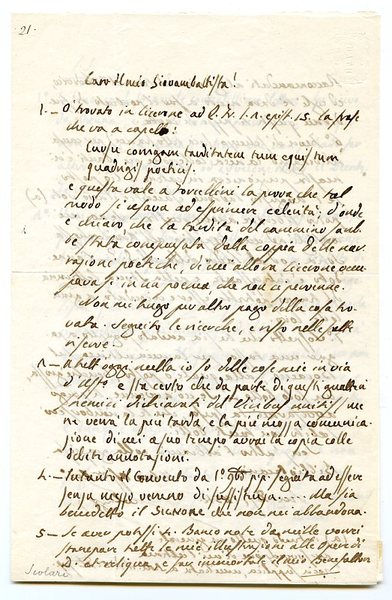 21.
Caro il mio Giovambattista!
1. – Ò trovato in Cicerone ad Q. Fr. l. 2. epist. 15. la frase
che va a capello:
cursu corrigam tarditatem tum equis tum
quadrigis poeticis.
e questa vale a la prova che tal
modo si usava ad esprimere celerità; d'onde
è chiaro, che la tardità del cammino sareb
be stata compensata dalla coppia delle nar
razioni poetiche, di cui allora Cicerone occu
pavasi in un poema che non ci pervenne.
Non mi tengo per altro pago della cosa tro
vata. Seguito le ricerche, e sto nelle
riserve.
A tutt'oggi nulla io so delle cose mie in via
d' e sta certo che da parte di questi
nemici dichiarati del me
ne verrà la più tarda e la più mozza comunica
zione di cui a suo tempo avrai la copia colle
debite annotazioni.
4. – Intanto il Convento da 1° p.p. seguita ad essere
senza mezzo veruno di sussistenza..... Ma sia
benedetto il SIGNORE che non mi abbandona.
5 – Se aver potessi 4. Banco note da mille vorrei
stampare tutte le mie illustrazioni alle Opere di
D. et reliqua e far immortale il mio Benefattor
Scolari